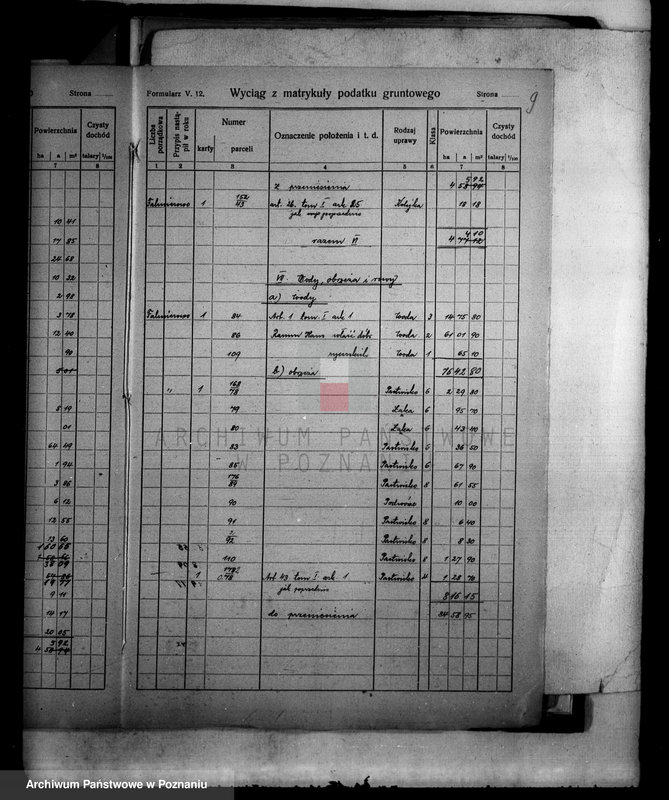 Strona
Powierzchnia
Czysty dochód
ha a m² talary
7 8
10 41
17 85
24 68
10 32
2 98
3 78
12 40
90
8 01
5 19
01
64 49
1 94
3 86
6 12
12 55
73 60
9 11
14 17
20 05
Formularz V. 12. Wyciąg z matrykuły podatku gruntowego Strona
9
Liczba porządkowa
Przypis nastąpił w roku
Numer
karty parceli
Oznaczenie położenia i t. d.
Rodzaj uprawy
Klasa
Powierzchnia
ha a m²
Czysty dochód
talary
1 2 3 4 5 6 7 8
z przeniesienia
1 152/43 art. 26 tom I ark 25 Kolejka 18 18
jak wyż poprzednio
razem VI
VII. Wody, obrzeża i rowy
a) Wody
1 84 Art. 1 tom I ark 1 Woda 3 14 75 80
86 Woda 2 61 01 90
109 Woda 1 65 10
b) obrzeża 76 42 80
" 1 168/78 Pastwisko 6 2 29 80
79 Łąka 6 95 70
80 Łąka 6 43 40
83 Pastwisko 6 36 50
85 Pastwisko 6 67 90
176/89 Pastwisko 8 61 55
90 Podwórze 10 00
91 Pastwisko 8 6 40
92 Pastwisko 8 8 30
110 Pastwisko 8 1 27 90
1 Art 43 tom I ark 1 Pastwisko 4 1 28 70
jak poprzednio
8 16 15
do przeniesienia 84 58 95
ARCHIWUM PAŃSTWOWE
W POZNANIU
Archiwum Państwowe w Poznaniu